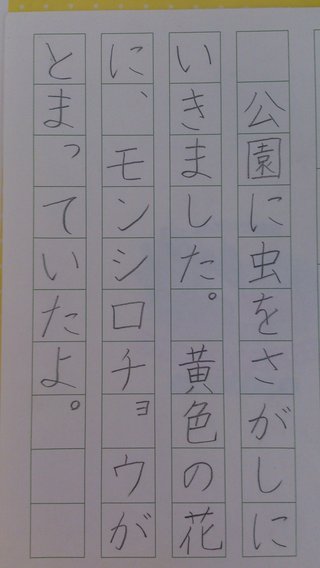 公園に虫をさがしに
いきました。黄色の花
に、モンシロチョウが
とまっていたよ。